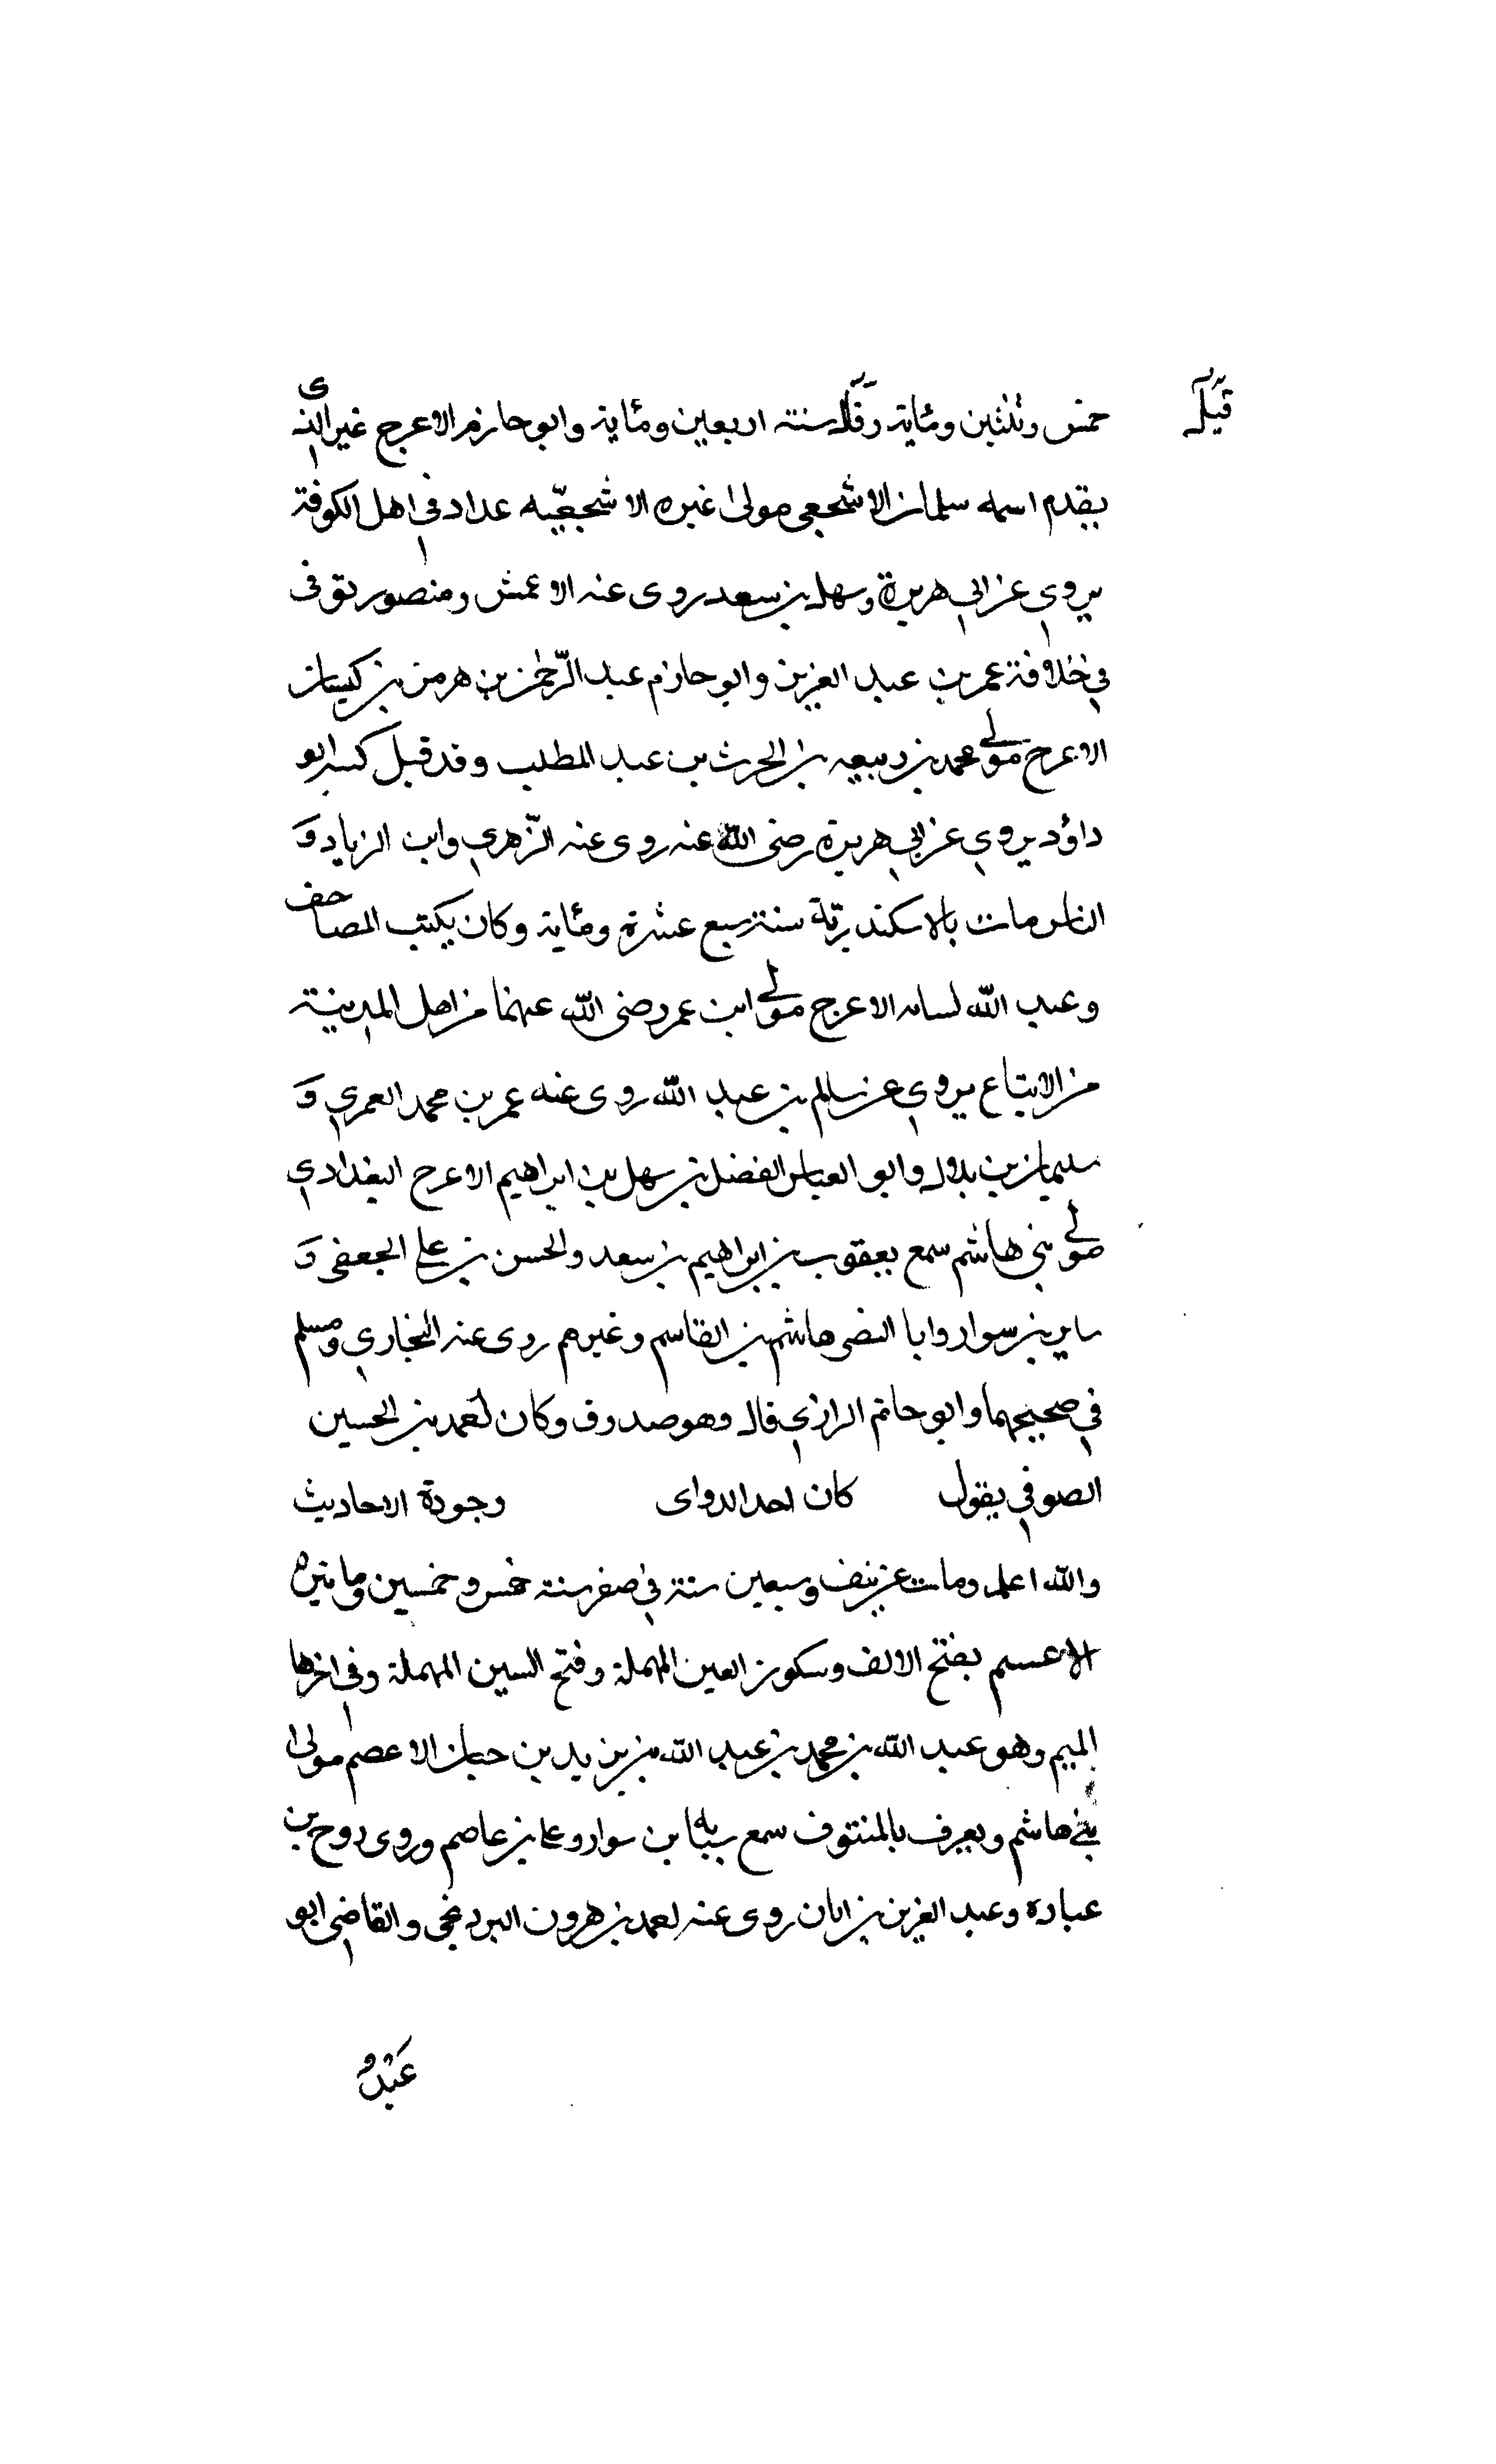 قيل
خمس وثلثين ومئاية وقال سنة اربعين ومئاية وابو حازم الاعرج غير الذى
يقدم اسمه سلمان الاشجعى مولى اغيره الاشجعيّه عداد فى اهل الكوفة
يروى عن ابى هريرة وسهل بن سعد روى عنه الاعمش ومنصور توفى
فى خلافة عمر بن عبد العزيز وابو حازم عبد الرّحمٰن بن هرمز بن كيسان
الاعرج مولى محمد بن ربيعه بن الحرث بن عبد المطلب وقد قيل كنيه ابو
داؤد يروى عن ابى هريرة رضى اللّٰه عنه روى عنه الزّهرى وابن الزياد وَ
الناس مات بالاسكندريّة سنة سبع عشرة ومئاية وكان يكتب المصاحف
وعبد اللّٰه لسان الاعرج مولى ابن عمر رضى اللّٰه عنهما من اهل المدينة
من الاتباع يروى عن سالم بن عبد اللّٰه روى عنه عمر بن محمد العمرى وَ
سليمان بن بلال وابو العباس الفضل بن سهل بن ابراهيم الاعرج البغدادى
مولى بنى هاشم سمع يعقوب بن ابراهيم بن سعد والحسن بن على الجعفى وَ
بن سوار وابا النضر هاشم بن القاسم وغيرهم روى عنه البخارى ومسلم
فى صحيحهما وابو حاتم الرازى قال وهو صدوق وكان احمد بن الحسين
الصوفى يقول كان احد الدواى وجودة الاحاديث
واللّٰه اعلم ومات عن نيف وسبعين سنة فى صفر سنة خمس وخمسين ومايتين ه
الاعسم بفتح الالف وسكون العين المهملة وفتح السين المهملة وفى اخرها
الميم وهو عبد اللّٰه بن محمد بن عبد اللّٰه بن يزيد بن حبان الاعصم مولى
بنى هاشم ويعرف بالمنتوف سمع شبابه بن سوار وعلى بن عاصم وروى روح بن
عباده وعبد العزيز بن ابان روى عنه احمد بن هرون البردعجى والقاضى ابو
عَبْدُ